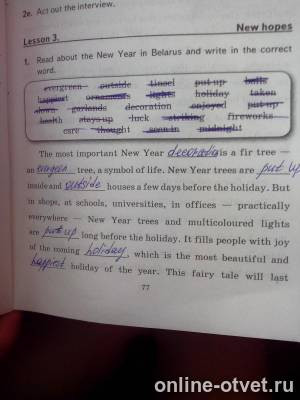 2e. Act out the interview.
Lesson 3. New hopes
1. Read about the New Year in Belarus and write in the correct
word.
evergreen outside tinsel put up balls
happiest ornaments lights holiday taken
down garlands decoration enjoyed put up
health stays up luck striking fireworks
care thought seen in midnight
The most important New Year decoration is a fir tree —
an evergreen tree, a symbol of life. New Year trees are put up
inside and outside houses a few days before the holiday. But
in shops, at schools, universities, in offices — practically
everywhere — New Year trees and multicoloured lights
are put up long before the holiday. It fills people with joy
of the coming holiday, which is the most beautiful and
happiest holiday of the year. This fairy tale will last
77
online-otvet.ru